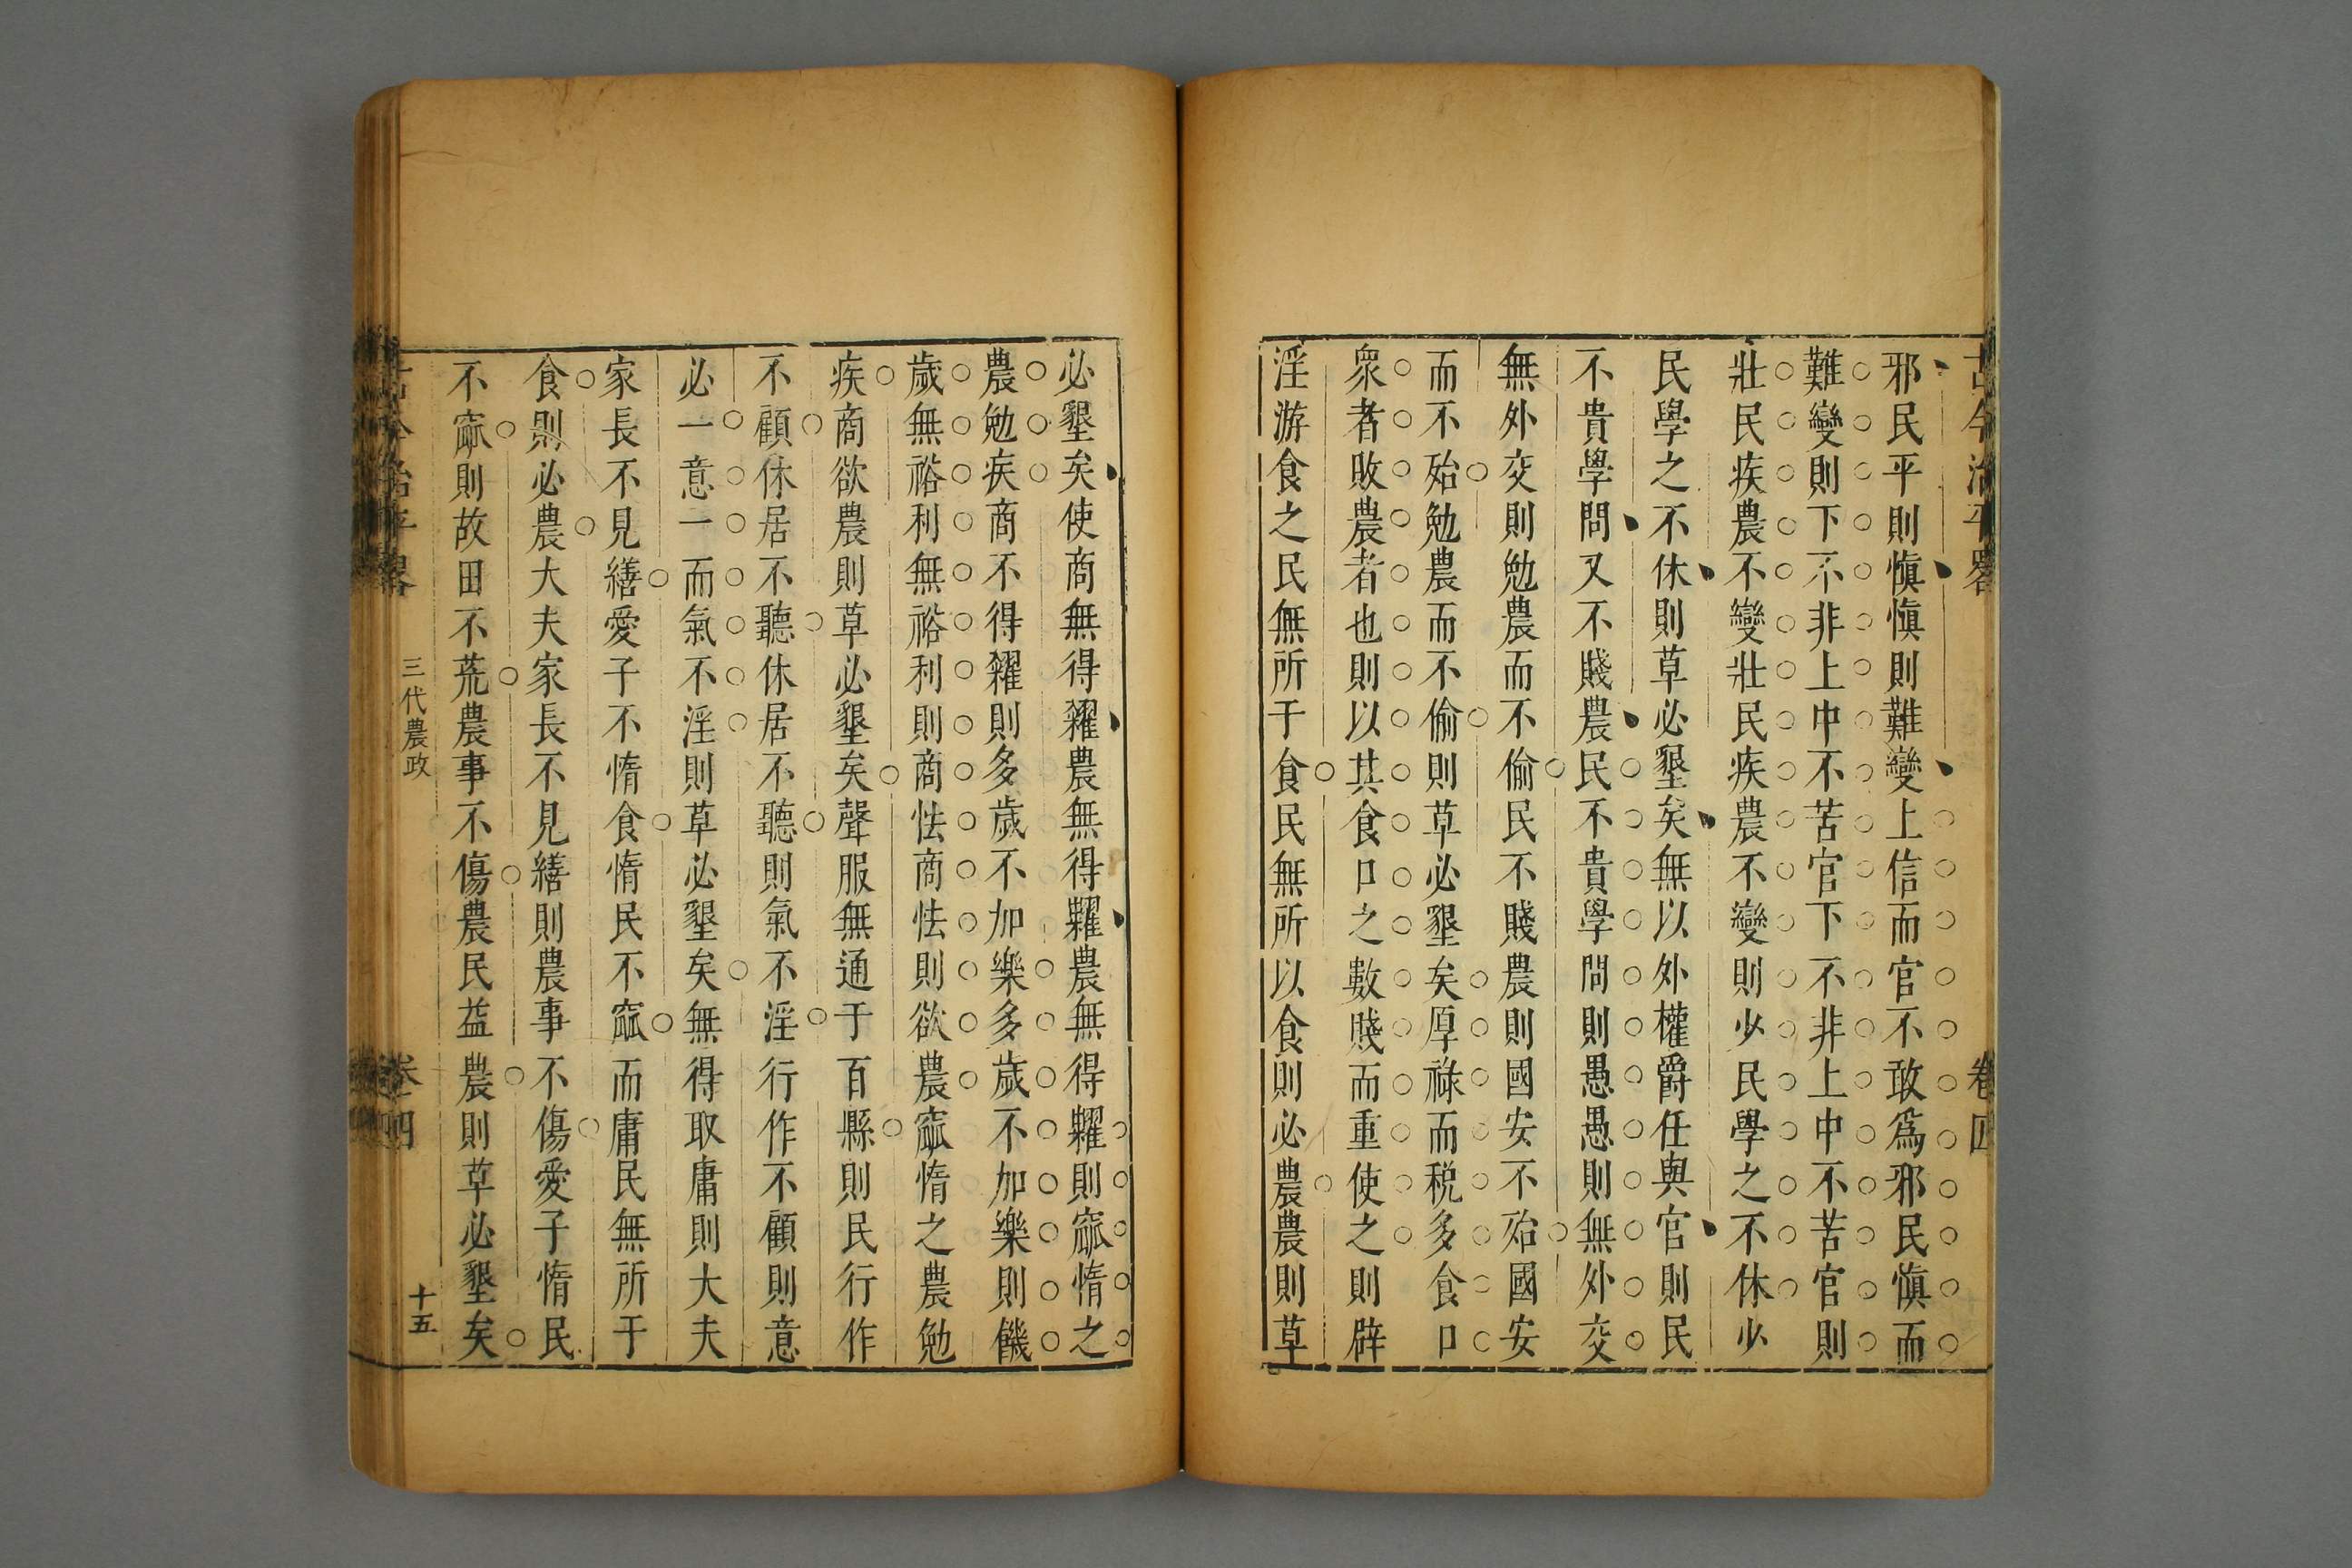 古今治平畧
卷四
邪民平則愼愼則難變上信而官不敢爲邪民愼而
難變則下不非上中不苦官下不非上中不苦官則
壯民疾農不變壯民疾農不變則少民學之不休少
民學之不休則草必墾矣無以外權爵任與官則民
不貴學問又不賤農民不貴學問則愚愚則無外交
無外交則勉農而不偷民不賤農則國安不殆國安
而不殆勉農而不偷則草必墾矣厚祿而税多食口
衆者敗農者也則以其食口之數賤而重使之則辟
淫游食之民無所于食民無所以食則必農農則草
必墾矣使商無得糴農無得糶農無得糶則窳惰之
農勉疾商不得糴則多歲不加樂多歲不加樂則饑
歲無裕利無裕利則商怯商怯則欲農窳惰之農勉
疾商欲農則草必墾矣聲服無通于百縣則民行作
不顧休居不聽休居不聽則氣不淫行作不顧則意
必一意一而氣不淫則草必墾矣無得取庸則大夫
家長不見繕愛子不惰食惰民不窳而庸民無所于
食則必農大夫家長不見繕則農事不傷愛子惰民
不窳則故田不荒農事不傷農民益農則草必墾矣
古今治平畧
三代農政
卷四
十五